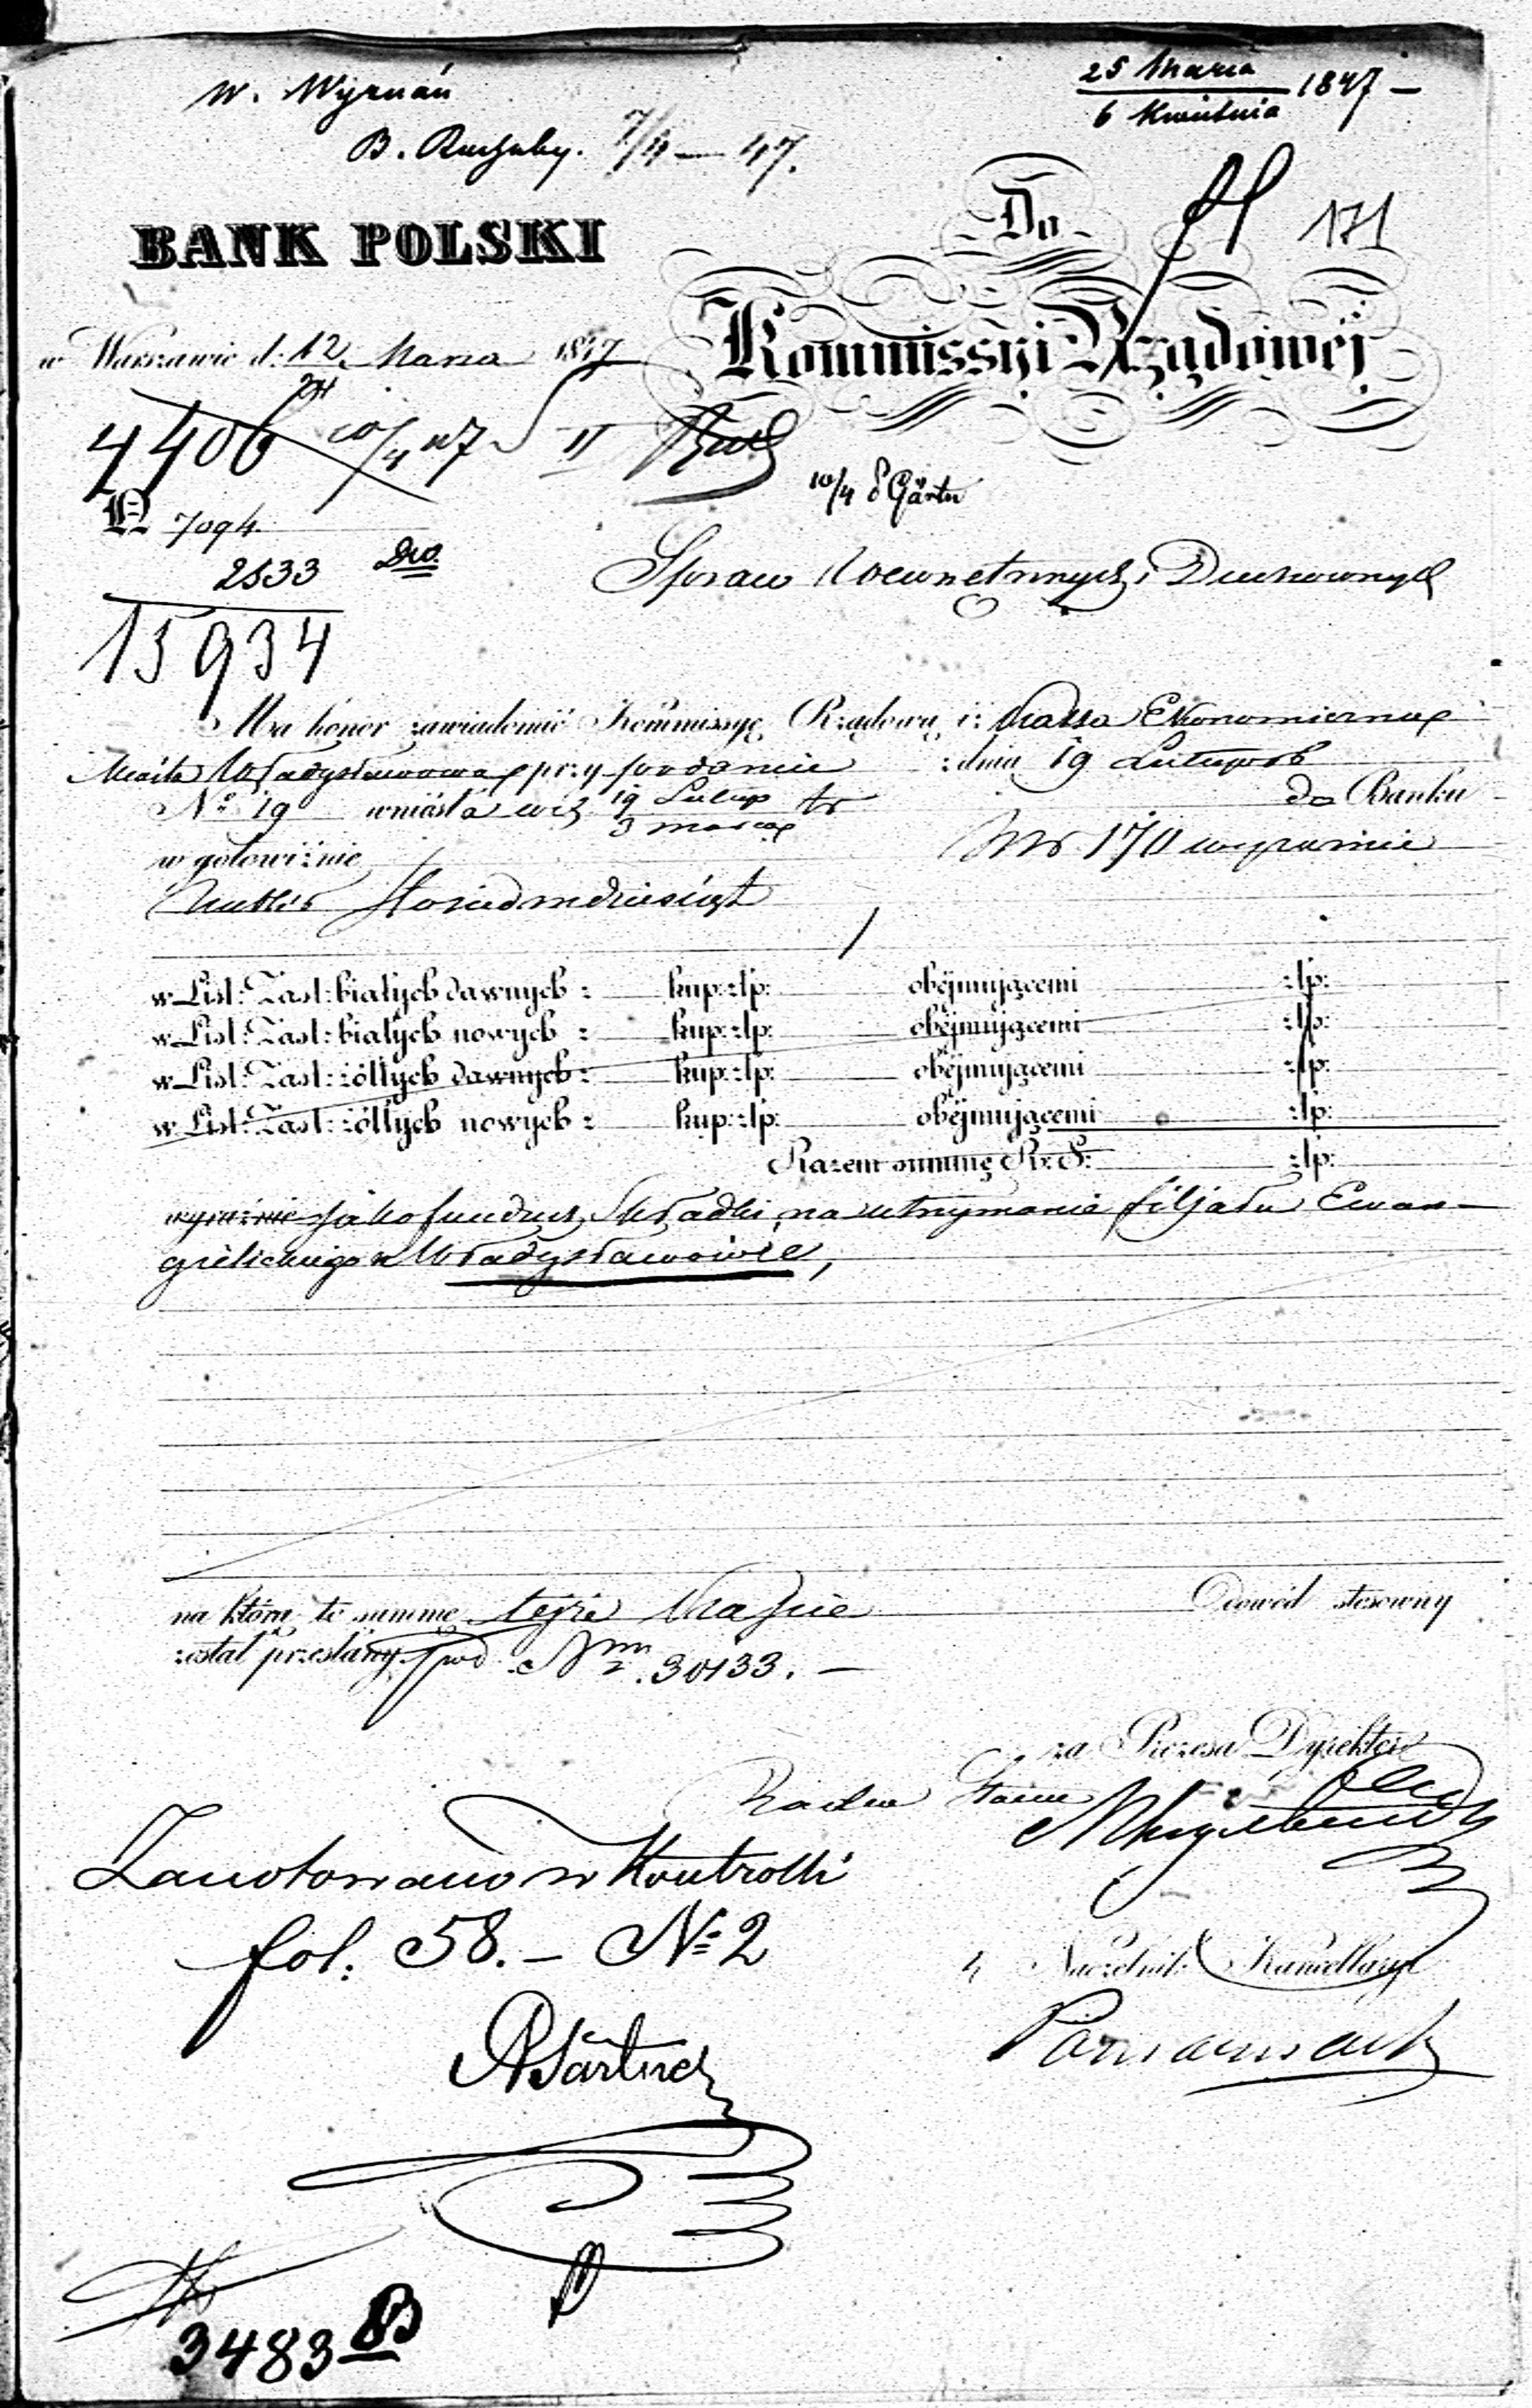 W. Wyznań
25 Marca
6 Kwietnia 1847 —
B. 7/4 — 47.
Do
171
BANK POLSKI
Kommissyi Rządowéj
w Warszawie d: 12 Marca 1847
24
4406 10/4 47 II
10/4
N 7094
2533
Spraw Wewnętrznych i Duchownych
15934
Ma honor zawiadomić Kommissyę Rządową iż Kassa Ekonomiczna
Miasta Władysławowa przy podaniu z dnia 19 Lutego
No 19 wniosła 19 Lutego do Banku
3 marca
w gotowiźnie Rs 170 wyraźnie
Rubli Sto siedmdziesiąt
w List: Zast: białych dawnych: kup: złp: obéjmującemi złp:
w List: Zast: białych nowych: kup: złp: obéjmującemi złp:
w List: Zast: żółtych dawnych: kup: złp: obéjmującemi złp:
w List: Zast: żółtych nowych: kup: złp: obéjmującemi złp:
Razem summę Rs: złp:
wyraźnie jako fundusz Składki na utrzymanie filjału Ewan-
gielickiego w Władysławowie,
na którą to summę tejże Kassie Dowód stosowny
został przesłany pod Nrm 30133. —
za Prezesa Dyrektor
Radca Stanu
Zanotowano w Kontrolli
fol: 58. – No 2
Naczelnik Kancellaryi
3483